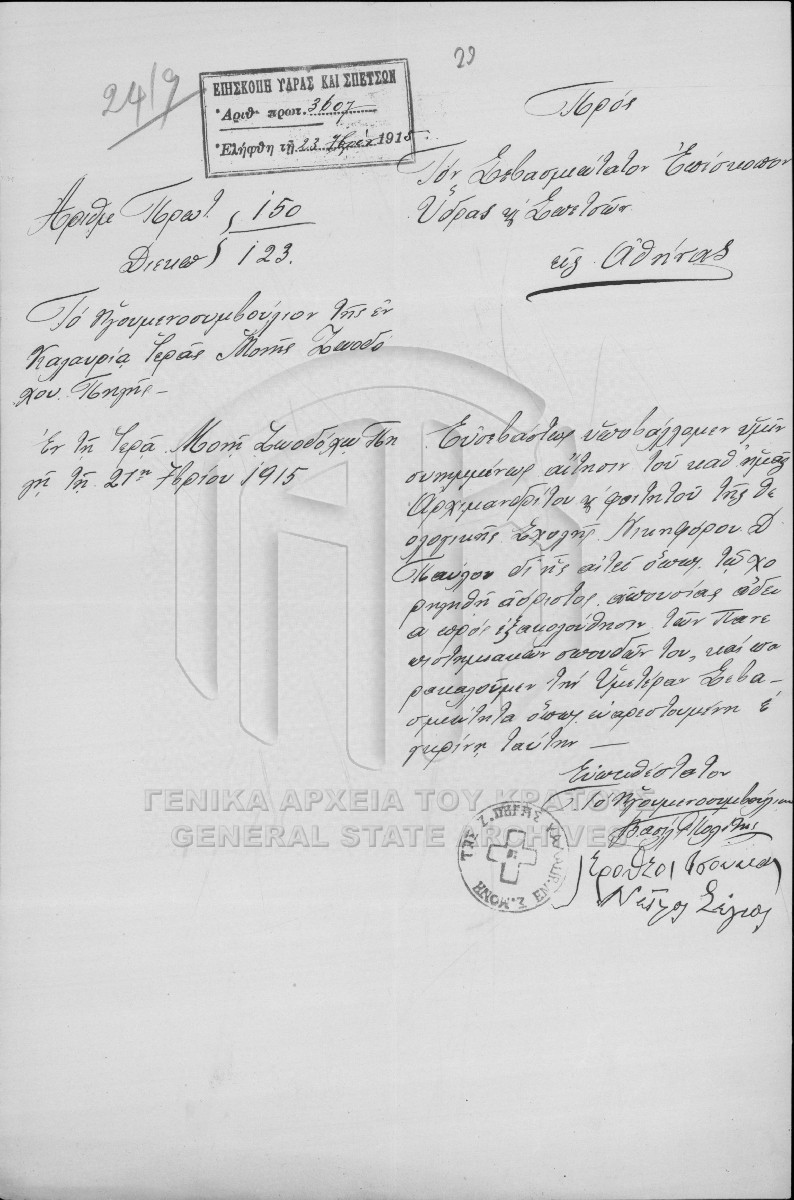 24/9
29
ΕΠΙΣΚΟΠΗ ΥΔΡΑΣ ΚΑΙ ΣΠΕΤΣΩΝ
Ἀριθ. πρωτ. 3607
Ἐλήφθη τῇ 23 7βρίου 1915
Πρός
Τόν Σεβασμιώτατον Ἐπίσκοπον
Ὕδρας κ Σπετσῶν
εἰς Ἀθήνας
Ἀριθμ Πρωτ. 150
Διεκπ 123.
Τό Ἡγουμενοσυμβούλιον τῆς ἐν
Καλαυρίᾳ Ἱερᾶς Μονῆς Ζωοδό
χου Πηγῆς –
Ἐν τῇ Ἱερᾷ Μονῇ Ζωοδόχῳ Πη
γῇ τῇ 21ῃ 7βρίου 1915
Εὐσεβάστως ὑποβάλλομεν ὑμῖν
συνημμένως αἴτησιν τοῦ καθ' ἡμᾶς
Ἀρχιμανδρίτου κ φοιτητοῦ τῆς Θε
ολογικῆς Σχολῆς Νικηφόρου Δ
Παύλου δι' ἧς αἰτεῖ ὅπως τῷ χο
ρηγηθῇ ἀόριστος ἀπουσίας ἄδει
α πρός ἐξακολούθησιν τῶν Πανε
πιστημιακῶν σπουδῶν του, καί πα
ρακαλοῦμεν τήν Ὑμετέραν Σεβα-
σμιότητα ὅπως εὐαρεστουμένη ἐ
γκρίνῃ ταύτην –
Εὐπειθέστατον
Τό Ἡγουμενοσυμβούλιον
Ἱερόθεος Τσουκα
ΤΗΣ Ζ. ΠΗΓΗΣ
Ι. ΜΟΝΗ ΕΝ
ΓΕΝΙΚΑ ΑΡΧΕΙΑ ΤΟΥ ΚΡΑΤΟΥΣ
GENERAL STATE ARCHIVES